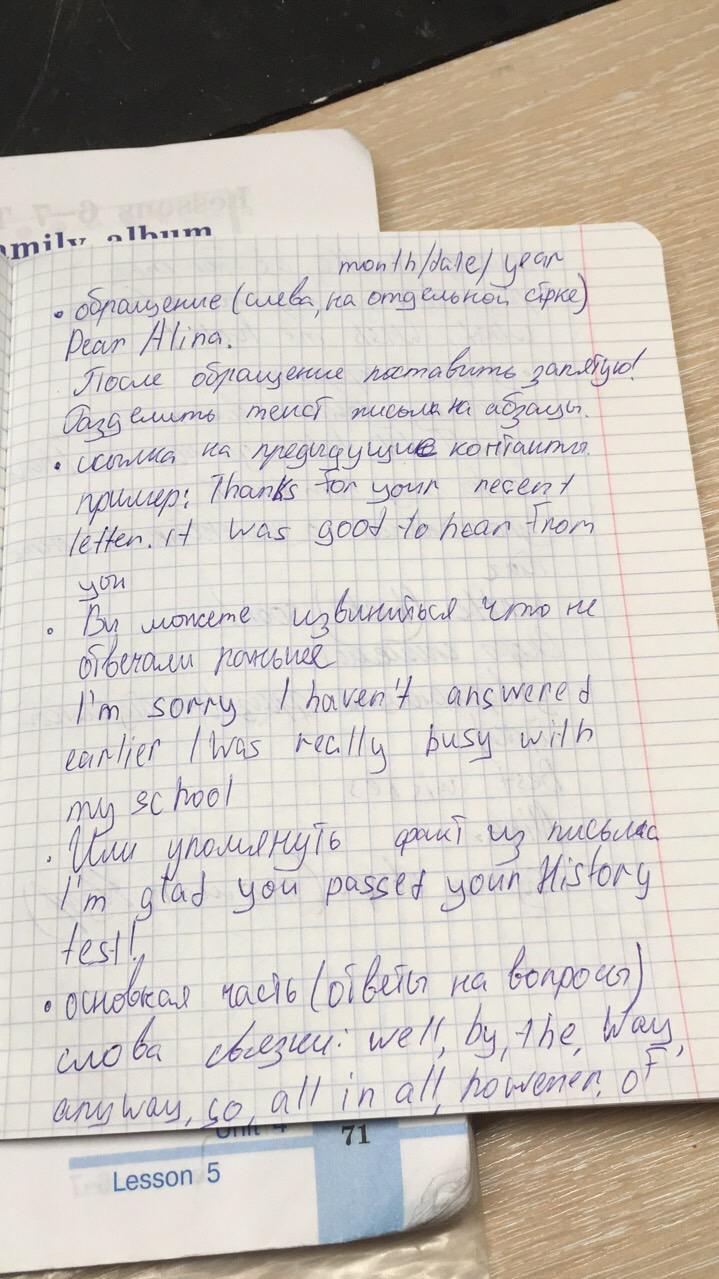 amily album
month/date/year
• обращение (слева, на отдельной стрке)
Dear Alina.
После обращение поставить запятую!
Разделить текст письма на абзацы.
• ссылка на предыдущие контакты.
пример: Thanks for your recent
letter. It was good to hear from
you
• Ви можете извиниться что не
отвечали раньше
I'm sorry I haven't answered
earlier I was really busy with
my school
• Или упомянуть факт из письма
I'm glad you passed your History
test!
• основная часть (ответы на вопросы)
слова связки: well, by, the, way,
anyway, so, all in all, however, of
Unit 4
71
Lesson 5